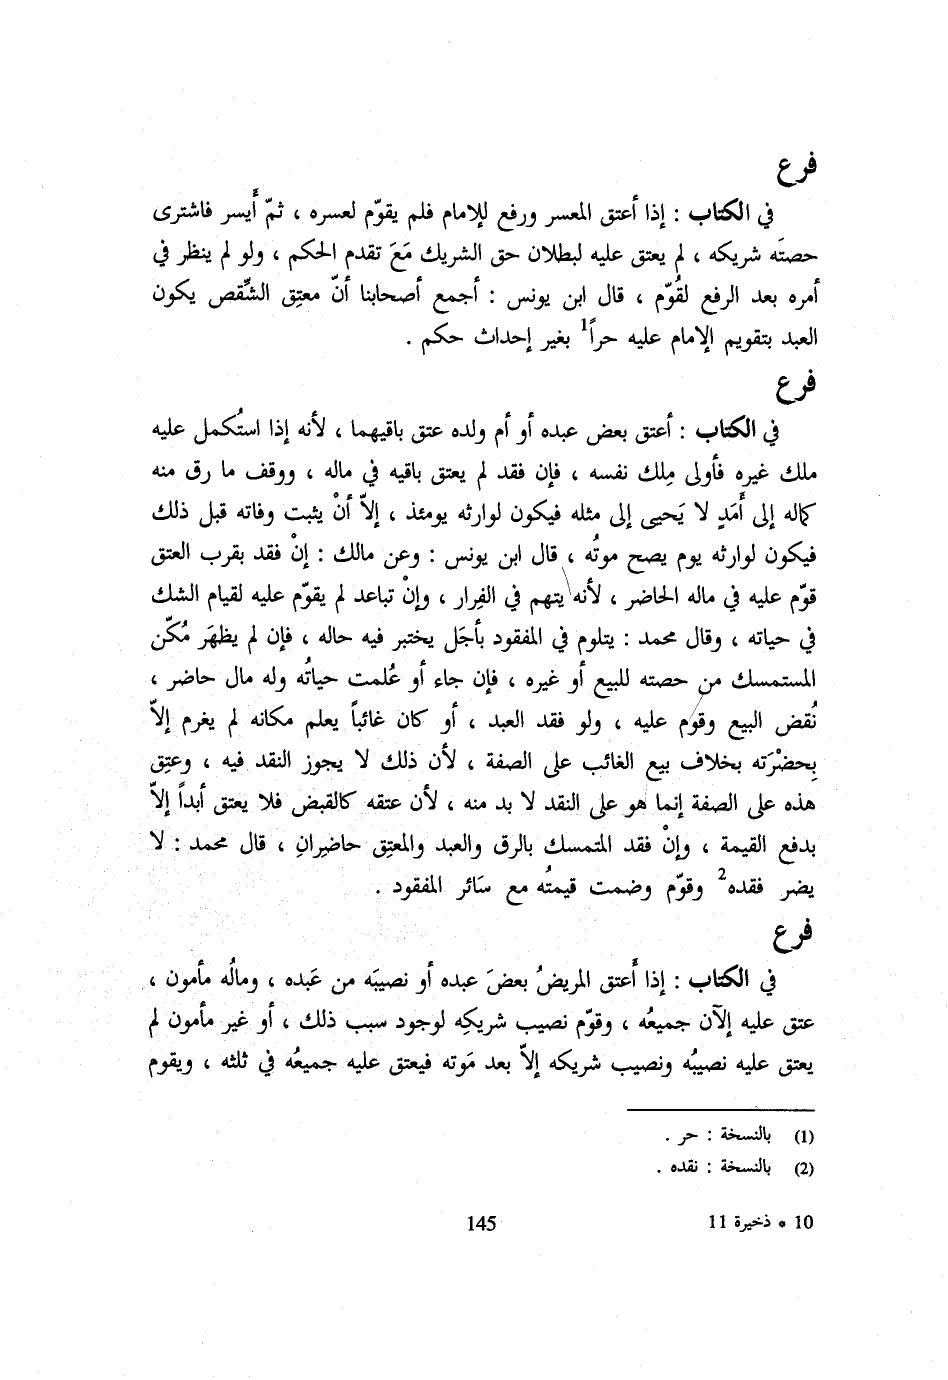 فرع
في الكتاب : إذا أعتق المعسر ورفع للإمام فلم يقوّم لعسره ، ثمّ أَيسر فاشترى
حصتَه شريكه ، لم يعتق عليه لبطلان حق الشريك مَعَ تقدم الحكم ، ولو لم ينظر في
أمره بعد الرفع لقُوّم ، قال ابن يونس : أجمع أصحابنا أنّ معتِق الشِّقص يكون
العبد بتقويم الإمام عليه حراً1 بغير إحداث حكم .
فرع
في الكتاب : أعتق بعض عبده أو أم ولده عتق باقيهما ، لأنه إذا استُكمل عليه
ملك غيره فأولى مِلك نفسه ، فإن فقد لم يعتق باقيه في ماله ، ووقف ما رق منه
كماله إلى أَمَدٍ لا يَحيى إلى مثله فيكون لوارثه يومئذ ، إلاّ أنْ يثبت وفاته قبل ذلك
فيكون لوارثه يوم يصح موتُه ، قال ابن يونس : وعن مالك : إنْ فقد بقرب العتق
قوّم عليه في ماله الحاضر ، لأنه يتهم في الفِرار ، وإنْ تباعد لم يقوّم عليه لقيام الشك
في حياته ، وقال محمد : يتلوم في المفقود بأجَل يختبر فيه حاله ، فإن لم يظهَر مُكّن
المستمسك من حصته للبيع أو غيره ، فإن جاء أو عُلمت حياتُه وله مال حاضر ،
نُقض البيع وقوّم عليه ، ولو فقد العبد ، أو كان غائباً يعلم مكانه لم يغرم إلاّ
بِحضْرَته بخلاف بيع الغائب على الصفة ، لأن ذلك لا يجوز النقد فيه ، وعتِق
هذه على الصفة إنما هو على النقد لا بد منه ، لأن عتقه كالقبض فلا يعتق أبداً إلاّ
بدفع القيمة ، وإنْ فقد المتمسك بالرق والعبد والمعتِق حاضِرانِ ، قال محمد : لا
يضر فقده2 وقوّم وضمت قيمتُه مع سَائر المفقود .
فرع
في الكتاب : إذا أَعتق المريضُ بعضَ عبده أو نصيبَه من عَبده ، ومالُه مأمون ،
عتق عليه الآن جميعُه ، وقوّم نصيب شريكِه لوجود سبب ذلك ، أو غير مأمون لم
يعتق عليه نصيبُه ونصيب شريكه إلاّ بعد مَوته فيعتق عليه جميعُه في ثلثه ، ويقوم
(1) بالنسخة : حر .
(2) بالنسخة : نقده .
10 * ذخيرة 11
145